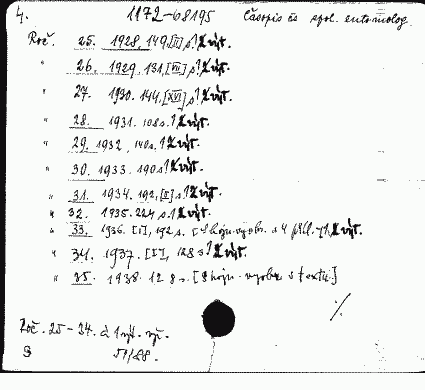 4. 1172-68195 Časopis čs. spol. entomolog.
Roč. 25. 1928, 149, [II] s. 1 Zvýt.
" 26. 1929, 131, [VII] s. 1 Zvýt.
" 27. 1930. 144, [XVI] s. 1 Zvýt.
" 28. 1931. 108 s. 1 Zvýt.
" 29. 1932, 140 s. 1 Zvýt.
" 30. 1933. 190 s. 1 Zvýt.
" 31. 1934. 192, [II] s. 1 Zvýt.
" 32. 1935. 224 s. 1 Zvýt.
" 33. 1936. [I], 192 s. [S 4 příl.] 1 Zvýt.
" 34. 1937. [I], 128 s. 1 Zvýt.
" 35. 1938. 128 s. [S vyobr. s textu.]
·/.
Roč. 25-34. à 1 výt. vý.
S 51/28.